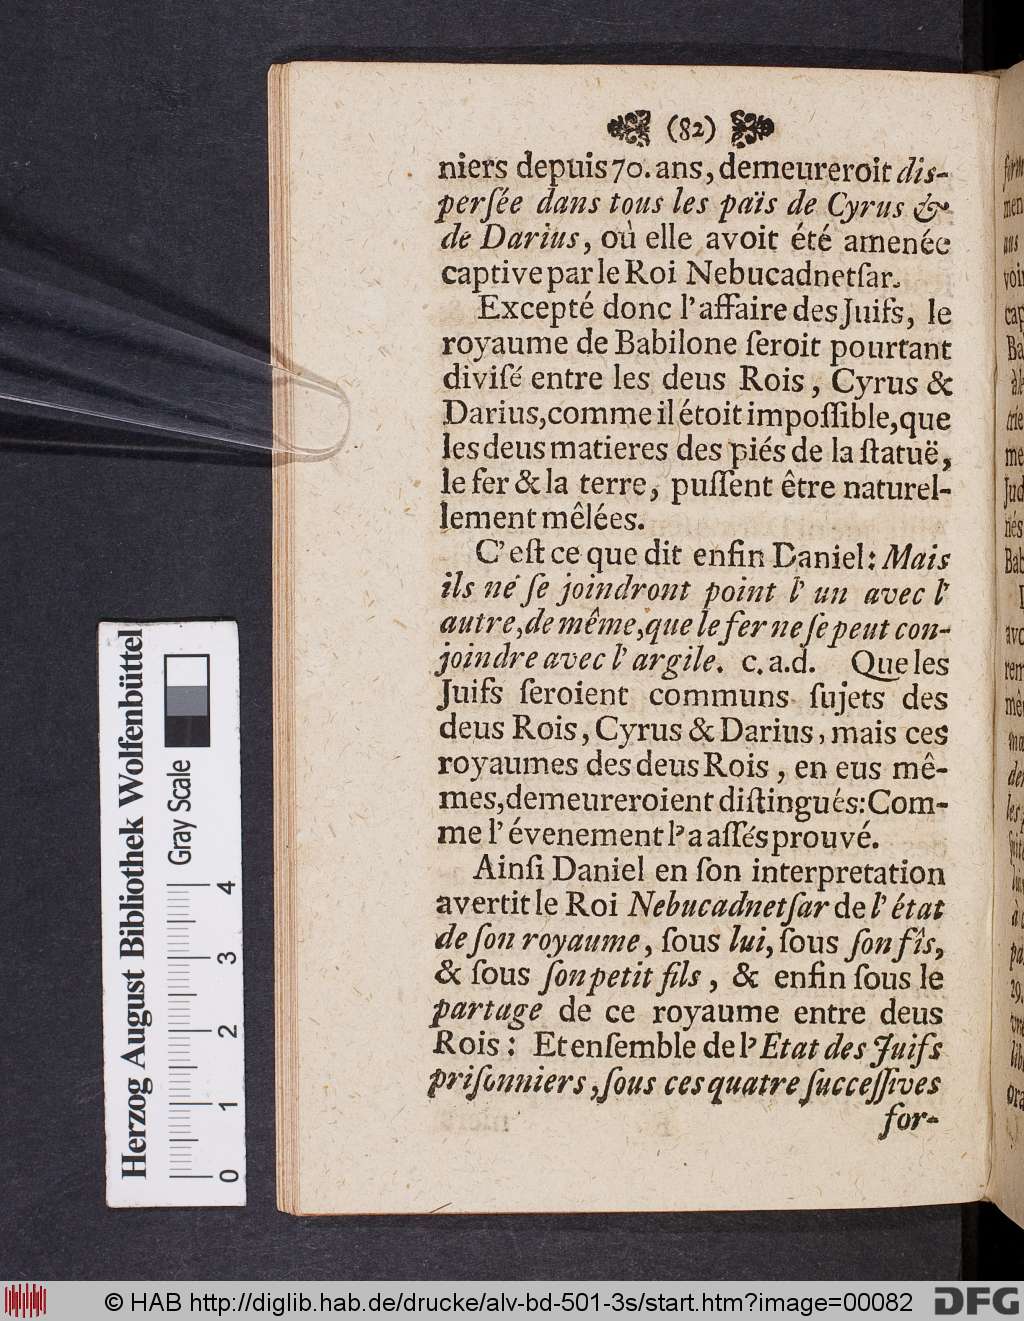 (82)
niers depuis 70. ans, demeureroit dis-
perſée dans tous les païs de Cyrus &
de Darius, où elle avoit été amenée
captive par le Roi Nebucadnetſar.
Excepté donc l’affaire des Juifs, le
royaume de Babilone ſeroit pourtant
diviſé entre les deus Rois, Cyrus &
Darius, comme il étoit impoſſible, que
les deus matieres des piés de la ſtatuë,
le fer & la terre, puſſent être naturel-
lement mêlées.
C’eſt ce que dit enfin Daniel: Mais
ils né ſe joindront point l’ un avec l’
autre, de même, que le fer ne ſe peut con-
joindre avec l’ argile. c. a. d. Que les
Juifs ſeroient communs ſujets des
deus Rois, Cyrus & Darius, mais ces
royaumes des deus Rois, en eus mê-
mes, demeureroient diſtingués: Com-
me l’ évenement l’a aſſés prouvé.
Ainſi Daniel en ſon interpretation
avertit le Roi Nebucadnetſar de l’ état
de ſon royaume, ſous lui, ſous ſon fîs,
& ſous ſon petit fils, & enfin ſous le
partage de ce royaume entre deus
Rois: Et enſemble de l’Etat des Juifs
priſonniers, ſous ces quatre ſucceſſives
for-
Herzog August Bibliothek Wolfenbüttel
Gray Scale
0 1 2 3 4
© HAB http://diglib.hab.de/drucke/alv-bd-501-3s/start.htm?image=00082
DFG